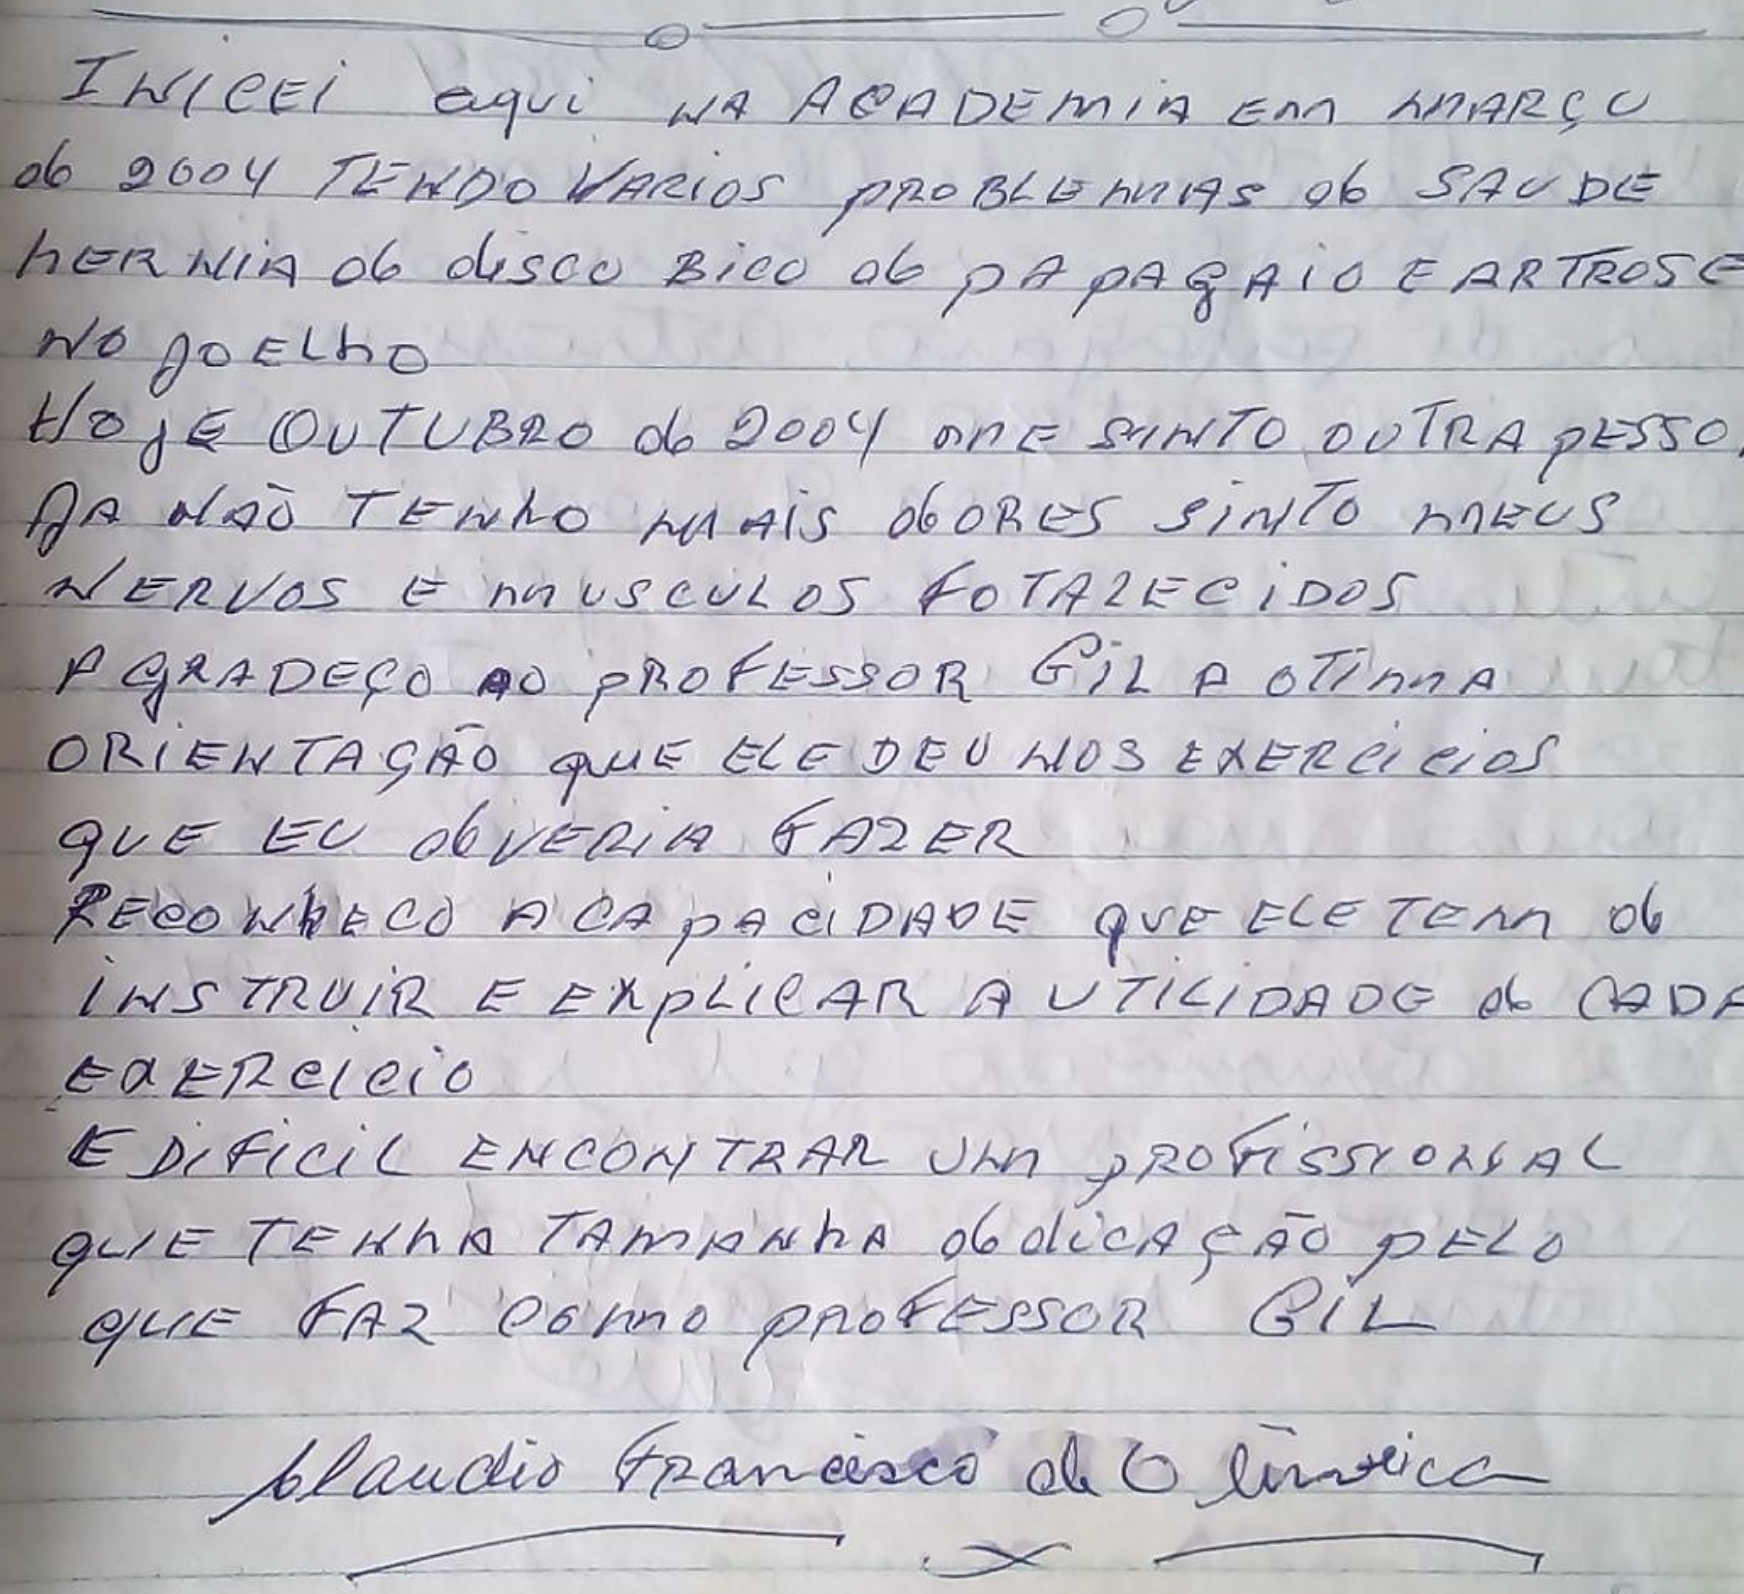 INICEI aqui NA ACADEMIA EM MARÇO
de 2004 TENDO VARIOS PROBLEMAS de SAUDE
hERNIA de disco BICO de PAPAGAIO E ARTROSE
NO JOELhO
HOJE OUTUBRO de 2004 ME SINTO OUTRA PESSOA
JA NÃO TENhO MAIS dORES SINTO MEUS
NERVOS E MUSCULOS FOTALECIDOS
AGRADEÇO AO PROFESSOR GIL A OTIMA
ORIENTAÇÃO QUE ELE DEU NOS EXERCICIOS
QUE EU deVERIA FAZER
RECONhECO A CAPACIDADE QUE ELE TEM de
INSTRUIR E EXPLICAR A UTILIDADE de CADA
EXERCICIO
E DIFICIL ENCONTRAR UM PROFISSIONAL
QUE TENhA TAMANhA dedICAÇÃO PELO
QUE FAZ COMO PROFESSOR GIL
Claudio Francisco de Oliveira